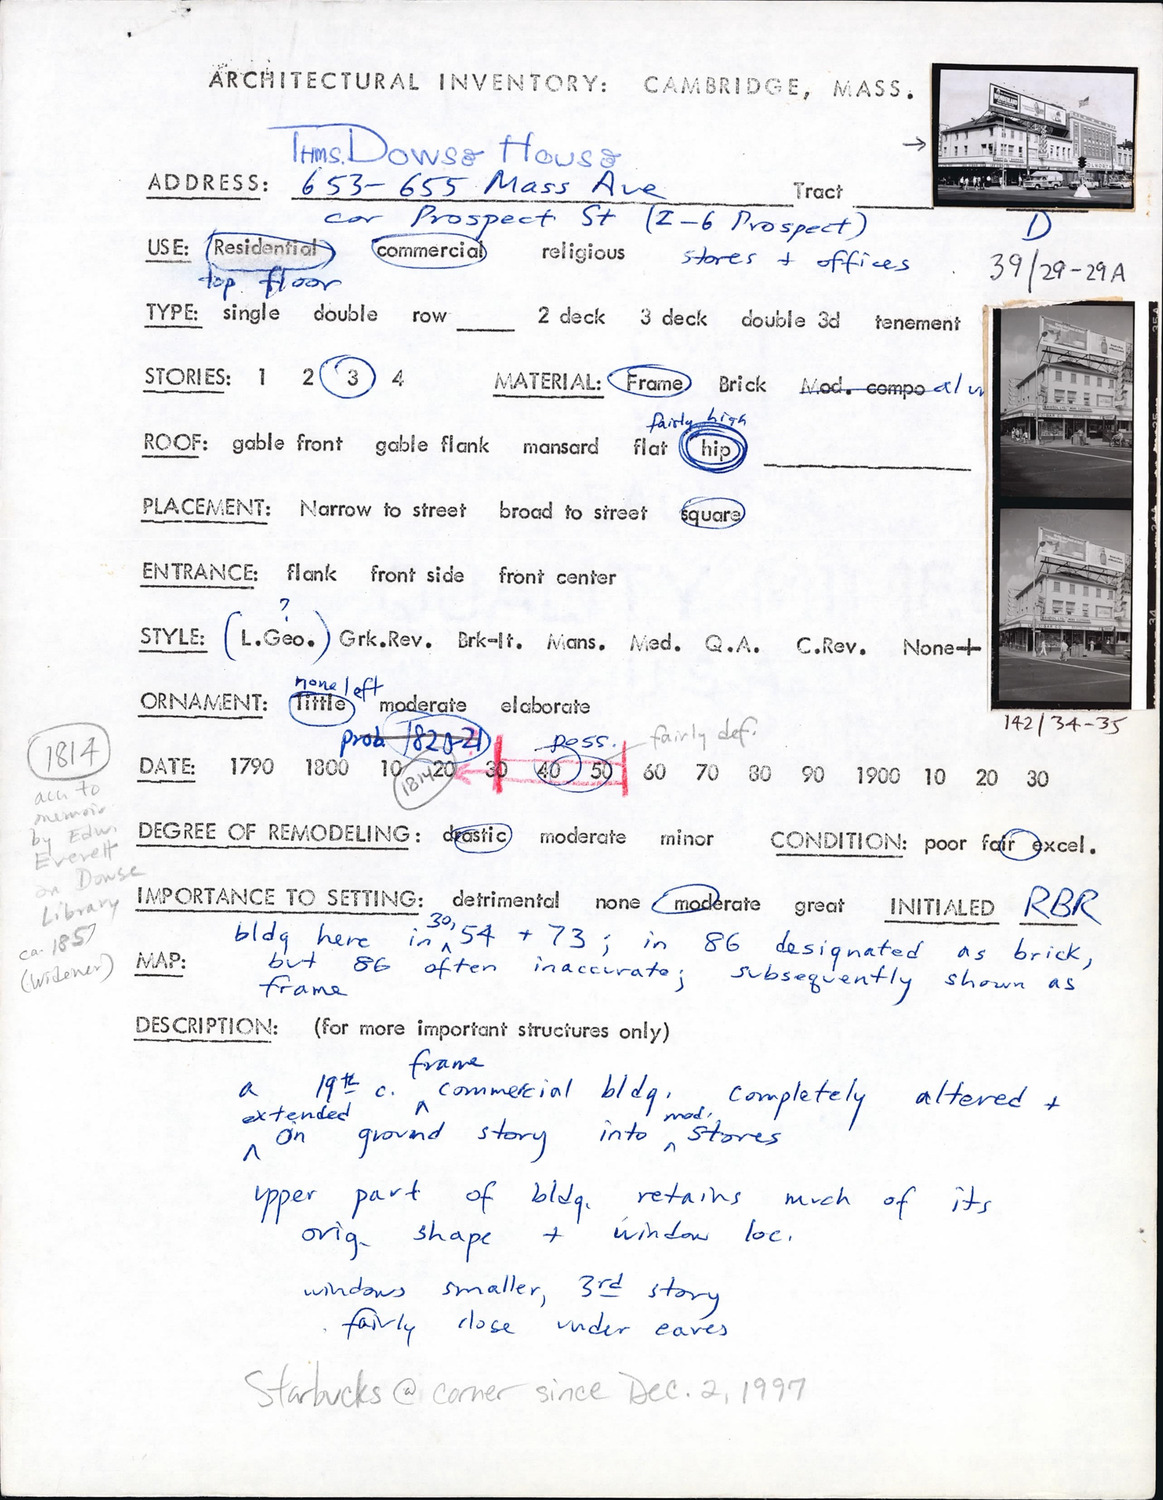 ARCHITECTURAL INVENTORY: CAMBRIDGE, MASS.
THMS. DOWSE HOUSE
ADDRESS: 653-655 Mass Ave Tract
cor Prospect St (2-6 Prospect)
D
USE: Residential commercial religious stores + offices
top floor
39/29-29A
TYPE: single double row 2 deck 3 deck double 3d tenement
STORIES: 1 2 3 4 MATERIAL: Frame Brick Mod. compo
fairly high
ROOF: gable front gable flank mansard flat hip
PLACEMENT: Narrow to street broad to street square
ENTRANCE: flank front side front center
?
STYLE: (L.Geo.) Grk.Rev. Brk-It. Mans. Med. Q.A. C.Rev. None+
none left
ORNAMENT: little moderate elaborate
142/34-35
prob 1820-21 poss. fairly def.
DATE: 1790 1800 10 20 30 40 50 60 70 80 90 1900 10 20 30
1814
1814
acc to
memoir
by Edw.
Everett
on Dowse
Library
ca. 1857
(Widener)
DEGREE OF REMODELING: drastic moderate minor CONDITION: poor fair excel.
IMPORTANCE TO SETTING: detrimental none moderate great INITIALED RBR
MAP: bldg here in 30, 54 + 73; in 86 designated as brick,
but 86 often inaccurate; subsequently shown as
frame
DESCRIPTION: (for more important structures only)
a 19th c. frame commercial bldg. completely altered +
extended on ground story into mod. stores
upper part of bldg. retains much of its
orig. shape + window loc.
windows smaller, 3rd story
fairly close under eaves
Starbucks @ corner since Dec. 2, 1997